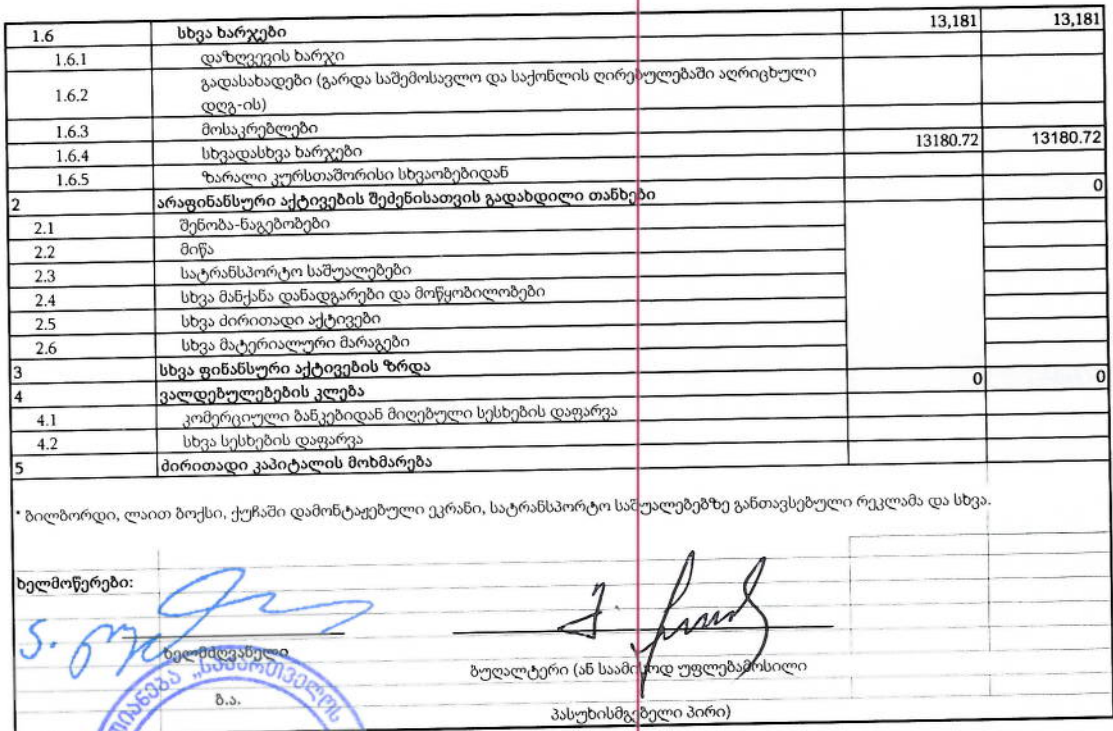 1.6 სხვა ხარჯები 13,181 13,181
1.6.1 დაზღვევის ხარჯი
1.6.2 გადასახადები (გარდა საშემოსავლო და საქონლის ღირებულებაში აღრიცხული
დღგ-ის)
1.6.3 მოსაკრებლები
1.6.4 სხვადასხვა ხარჯები 13180.72 13180.72
1.6.5 ზარალი კურსთაშორისი სხვაობებიდან
2 არაფინანსური აქტივების შეძენისათვის გადახდილი თანხები 0
2.1 შენობა-ნაგებობები
2.2 მიწა
2.3 სატრანსპორტო საშუალებები
2.4 სხვა მანქანა დანადგარები და მოწყობილობები
2.5 სხვა ძირითადი აქტივები
2.6 სხვა მატერიალური მარაგები
3 სხვა ფინანსური აქტივების ზრდა
4 ვალდებულებების კლება 0 0
4.1 კომერციული ბანკებიდან მიღებული სესხების დაფარვა
4.2 სხვა სესხების დაფარვა
5 ძირითადი კაპიტალის მოხმარება
* ბილბორდი, ლაით ბოქსი, ქუჩაში დამონტაჟებული ეკრანი, სატრანსპორტო საშუალებებზე განთავსებული რეკლამა და სხვა.
ხელმოწერები:
ხელმძღვანელი
ბუღალტერი (ან საამისოდ უფლებამოსილი
ბ.ა.
პასუხისმგებელი პირი)
"საქართველოს